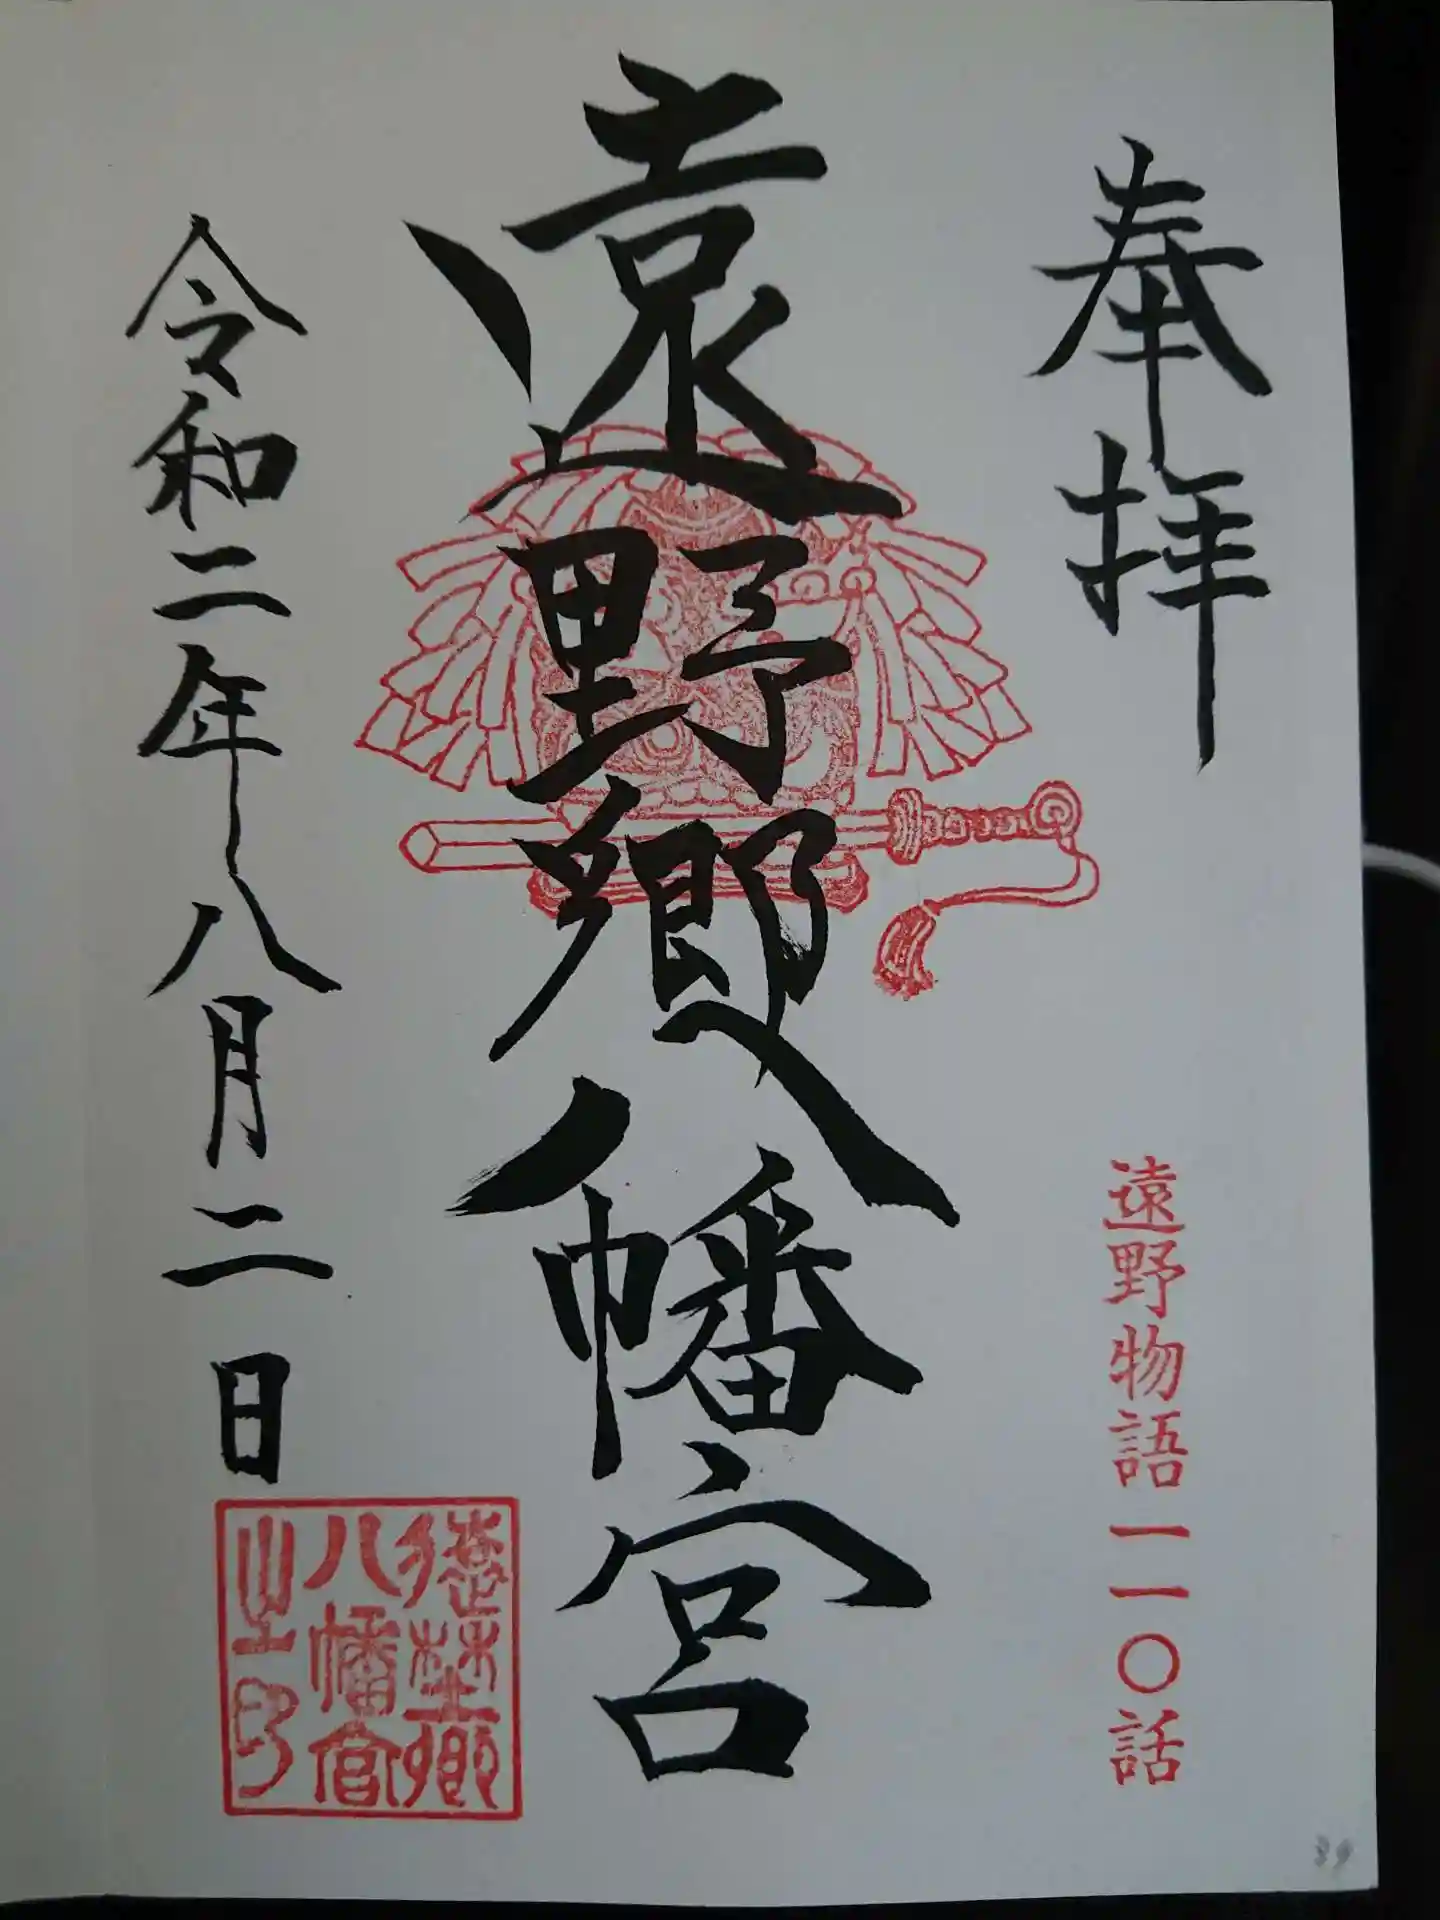 奉拝
遠野物語一一〇話
遠野郷八幡宮
令和二年八月二日
遠野郷
八幡宮
之印
39